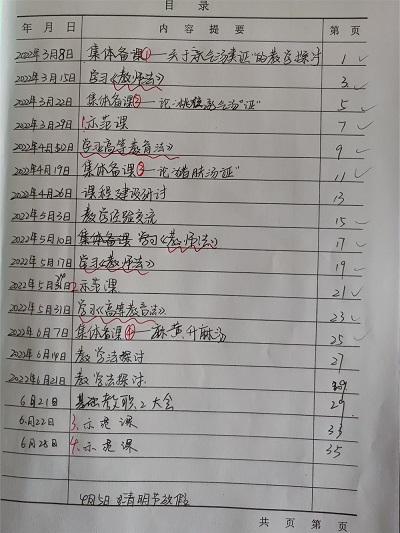 目 录
年 月 日 内 容 提 要 第 页
2022年3月8日 集体备课①—关于承气汤类证"的教学探讨 1
2022年3月15日 学习《教师法》 3
2022年3月22日 集体备课②—论:桃核承气汤"证" 5
2022年3月29日 1.示范课 7
2022年4月12日 学习《高等教育法》 9
2022年4月19日 集体备课③—论"猪肤汤证" 11
2022年4月26日 课程建设研讨 13
2022年5月3日 教学经验交流 15
2022年5月10日 集体备课 学习《教师法》 17
2022年5月17日 学习《教师法》 19
2022年5月 日 2.示范课 21
2022年5月31日 学习《高等教育法》 23
2022年6月7日 集体备课④—麻黄升麻汤 25
2022年6月14日 教学法探讨 27
2022年6月21日 教学法探讨
6月21日 基础教职工大会 29
6月22日 3.示范课 33
6月28日 4.示范课 35
4月5日 清明节放假
共 页 第 页